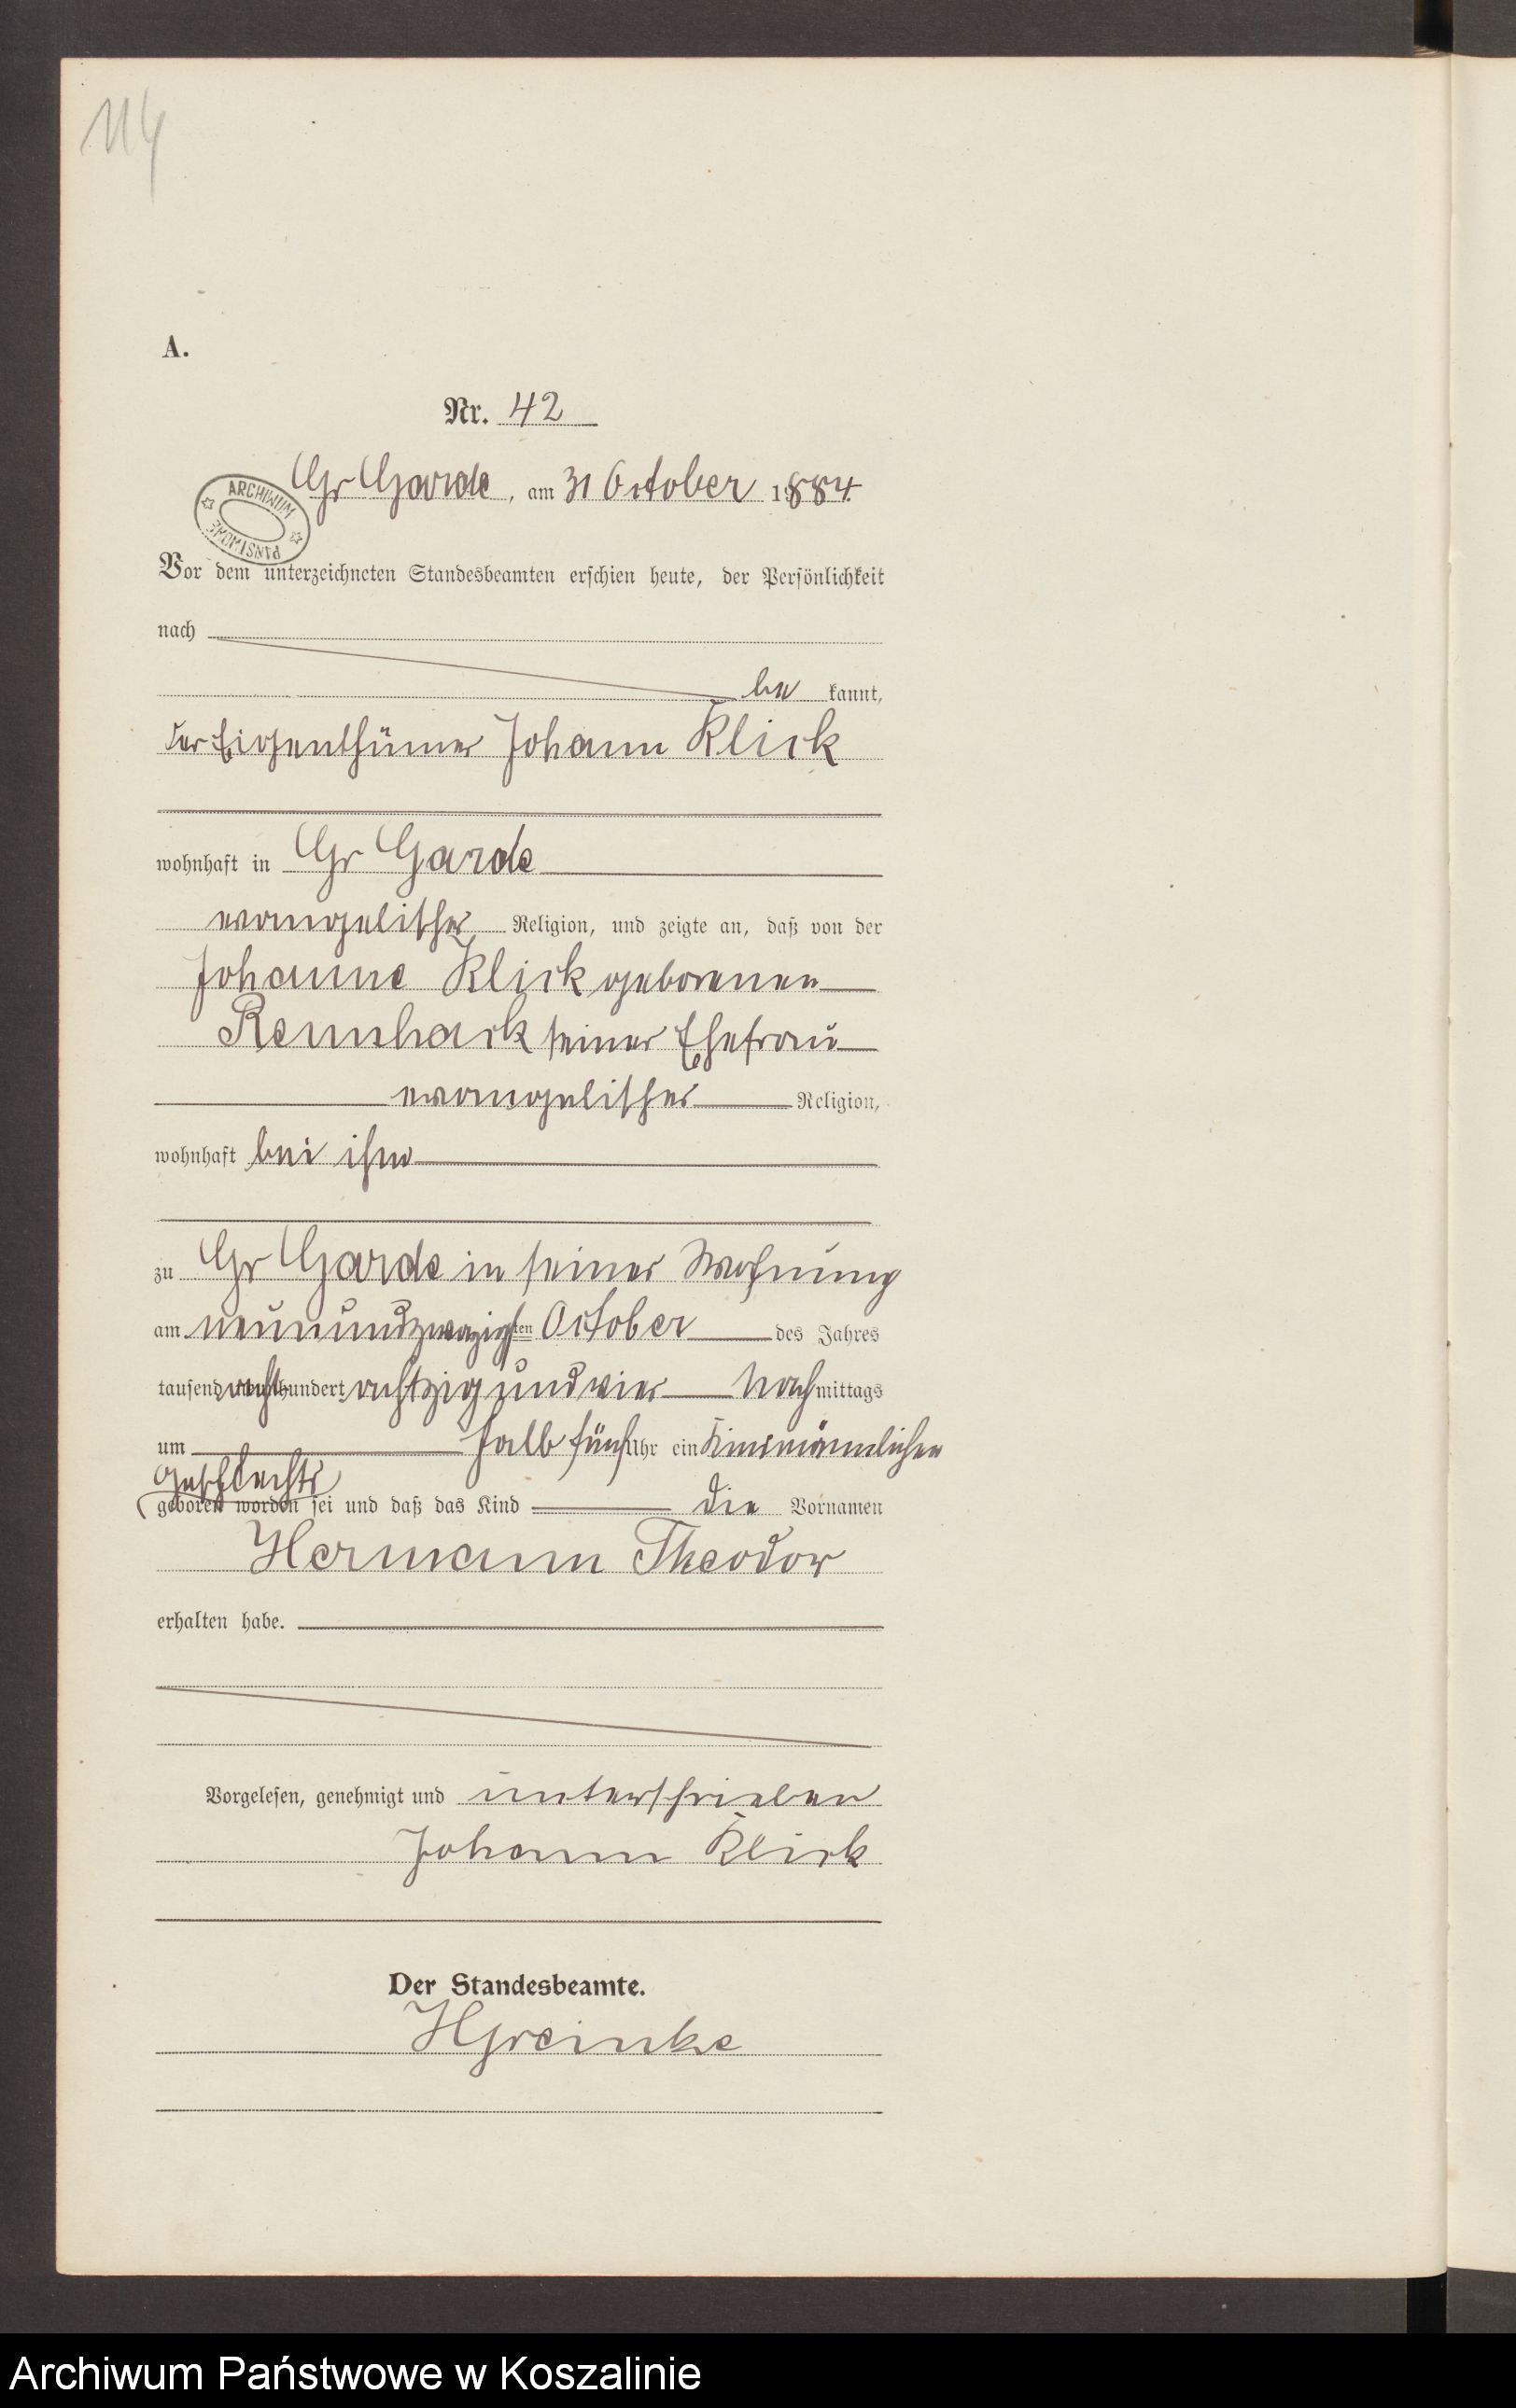 114
A.
Nr. 42
Gr Garde, am 31 October 1884.
ARCHIWUM PAŃSTWOWE
Vor dem unterzeichneten Standesbeamten erschien heute, der Persönlichkeit
nach
be kannt,
der Eigenthümer Johann Klick
wohnhaft in Gr Garde
evangelischer Religion, und zeigte an, daß von der
Johanne Klick geborenen
Rennhack seiner Ehefrau
evangelischer Religion,
wohnhaft bei ihm
zu Gr Garde in seiner Wohnung
am neunundzwazigsten October des Jahres
tausend acht hundert achtzig und vier Nachmittags
um halb fünf Uhr ein Kind männlichen
Geschlechts
geboren worden sei und daß das Kind die Vornamen
Hermann Theodor
erhalten habe.
Vorgelesen, genehmigt und unterschrieben
Johann Klick
Der Standesbeamte.
HGreinke
Archiwum Państwowe w Koszalinie